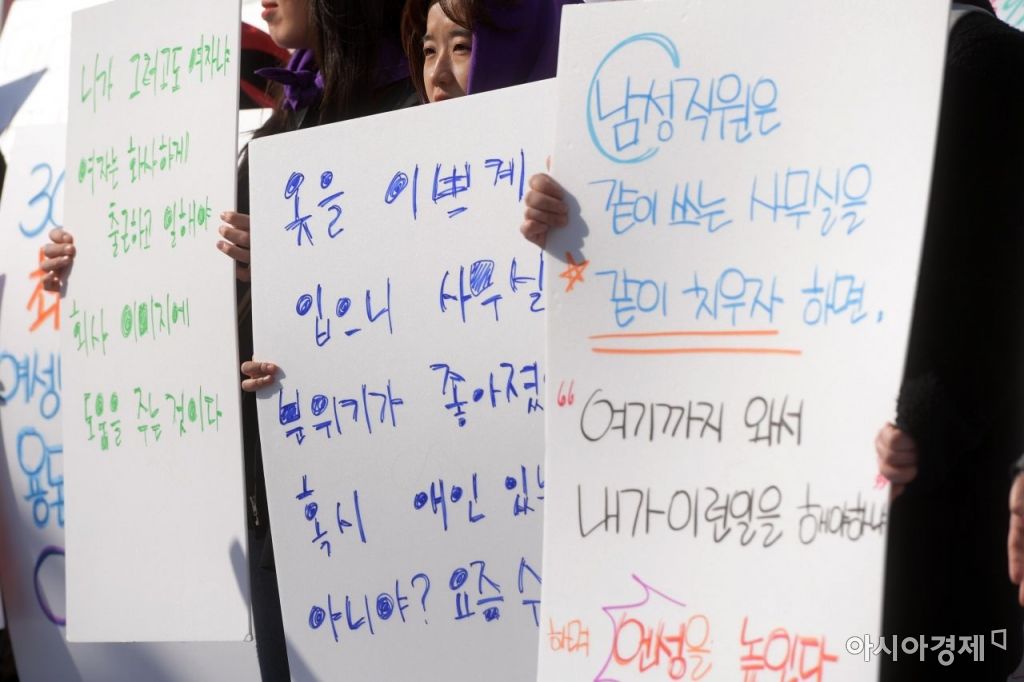 니가 그러고도 여자냐
여자는 화사하게
출근하고 일해야
회사 이미지에
도움을 주는 것이다
옷을 이쁘게
입으니 사무실
분위기가 좋아졌
혹시 애인 있
아니야? 요즘 수
남성직원은
같이 쓰는 사무실을
같이 치우자 하면,
"여기까지 와서
내가 이런일을 해야하냐"
하며 언성을 높인다
30
여성
용모
아시아경제